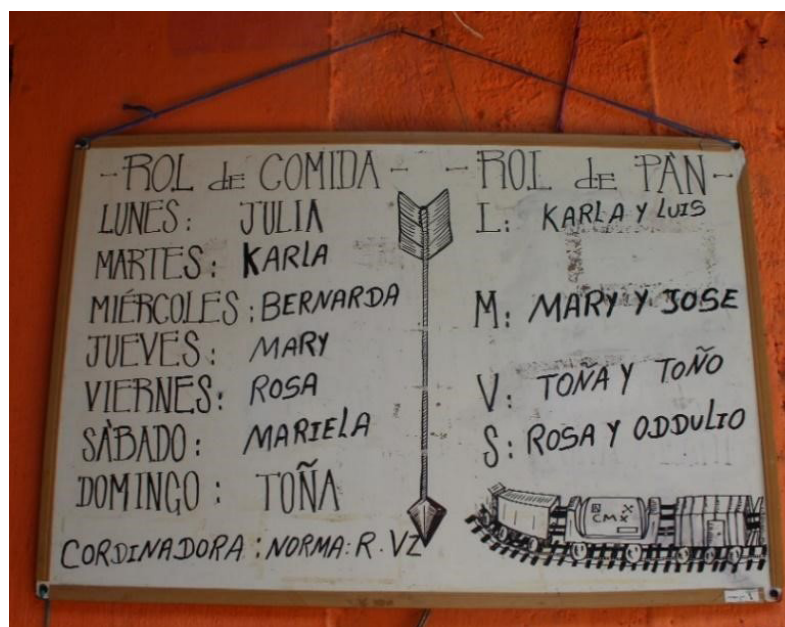 - ROL de COMIDA -
LUNES: JULIA
MARTES: KARLA
MIÉRCOLES: BERNARDA
JUEVES: MARY
VIERNES: ROSA
SÀBADO: MARIELA
DOMINGO: TOÑA
CORDINADORA: NORMA: R. VZ
- ROL de PÀN -
L: KARLA Y LUIS
M: MARY Y JOSE
V: TOÑA Y TOÑO
S: ROSA Y ODDULIO
CMX